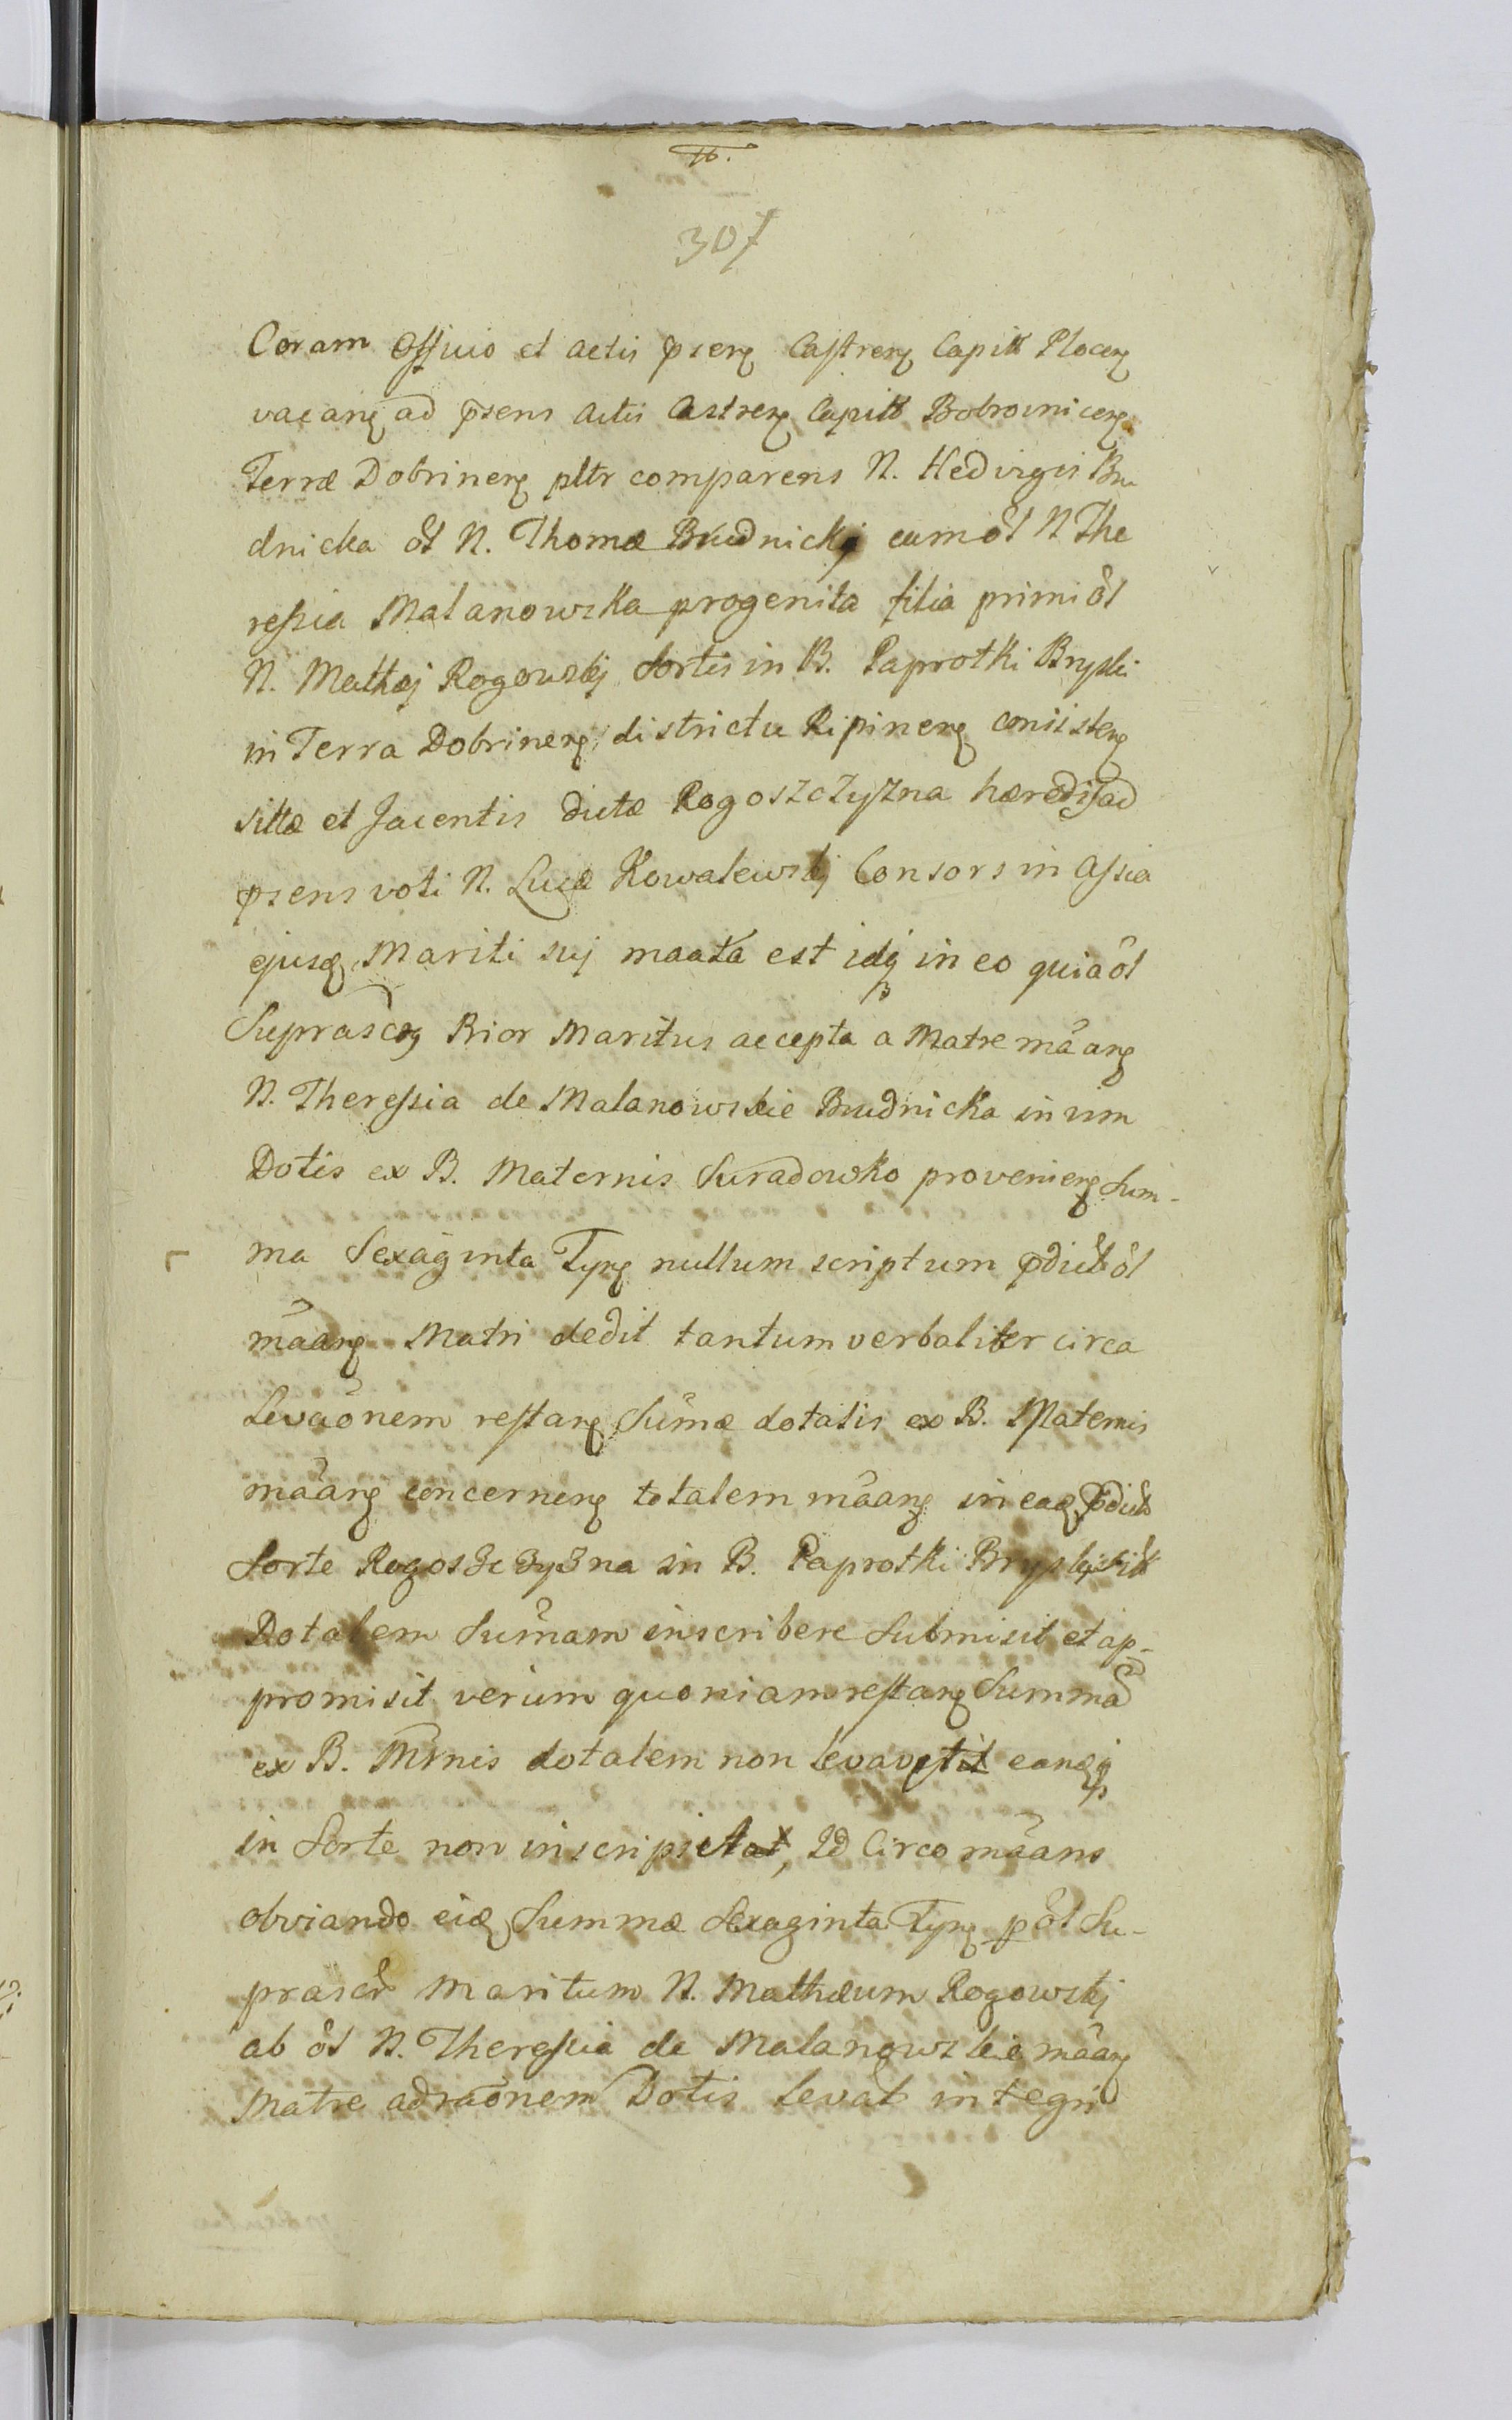 307
Coram Officio et Actis pseng Castreng Capitt Ploceng
vacang ad psens Actis Castreng Capitt Bobrowniceng
Terræ Dobrineng pltr comparens N. Hedvigis Bru
dnicka ôl N. Thomæ Brudnickj cum ôl N The
ressia Malanowska progenita filia primi ôl
N. Mathæj Rogowskj Sortis in B. Paprotki Bryski
in Terra Dobrineng districtu Ripineng consisteng
sittæ et Jacentis dictæ Rogoszczyzna hæredis ad
psens voti N. Lucæ Kowalewskj Consors in assia
ejusd Mariti suj maata est idq in eo quia ôl
Suprascrg Prior Maritus accepta a Matre mâang
N. Theressia de Malanowskie Brudnicka in vim
Dotis ex B. Maternis Suradowko provenieng Sum-
ma Sexaginta Tyng nullum scriptum pdictæ ôl
mâang Matri dedit tantum verbaliter circa
Levaônem restang Sum̃æ dotalis ex B. Maternis
mâang concerneng totalem mâang in ead pdict
Sorte Rogoszczyzna in B. Paprotki Bryskj sitt
Dotalem Sum̃am inscribere Submisit et ap-
promisit verum quoniam restang Summã
ex B. Mrnis dotalem non levavit eandq
in Sorte non inscripsit, Id Circo mâans
obviando eid Summæ Sexaginta Tyng p ôl Su-
prascr Maritum N. Mathæum Rogowskj
ab ôl N. Theressia de Malanowskie mâang
Matre ad raônem Dotis levat integri